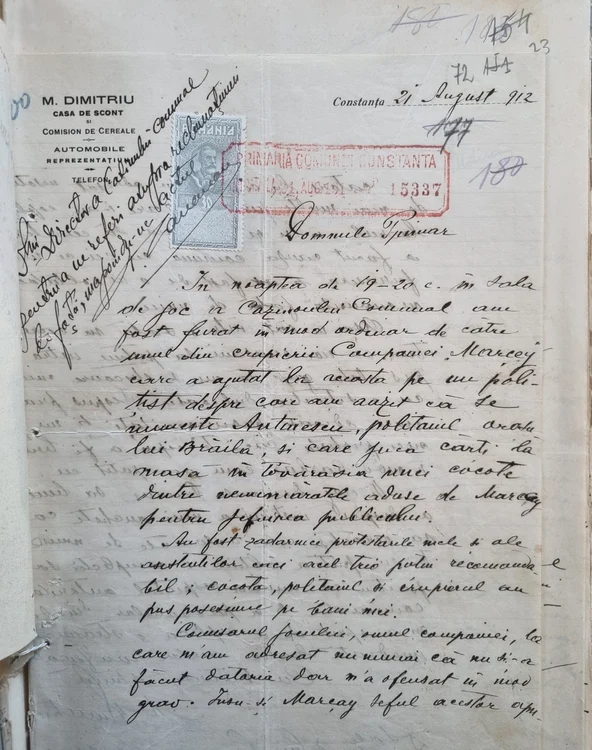 180 154
75
23
72
177
180
M. DIMITRIU
CASA DE SCONT
ȘI
COMISION DE CEREALE
AUTOMOBILE
REPREZENTAȚIUNI
TELEFON
Constanța 21 August 912
PRIMĂRIA COMUNEI CONSTANTA
AUG. 15337
Dlui Director al Casinului comunal
pentru a ne referi asupra reclamațiunii
de față
Domnule Primar
In noaptea de 19-20 c. în sala
de joc a Cazinoului Comunal am
fost furat în mod ordinar de catre
unul din crupierii Companiei Marcay
care a ajutat la aceasta pe un poli-
tist despre care am auzit că se
numeste Antonescu, politaiul orasu
lui Brăila, si care juca cărti la
masă în tovarasia unei cocote
dintre nenumaratele aduse de Marcay
pentru jefuirea publicului.
Au fost zadarnice protestarile mele si ale
asistentilor caci acel trio putin recomanda
bil; cocota, politaiul si crupierul au
pus posesiune pe banii mei.
Comisarul jocului, omul companiei, la
care m'am adresat nu numai că nu si-a
făcut datoria dar m'a ofensat în mod
grav. Insusi Marcay seful acestor